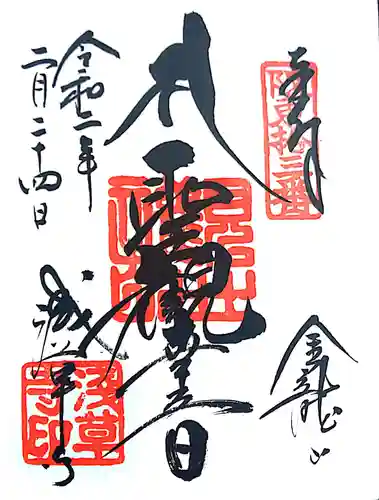 奉拝
阪東拾三番
金龍山
聖観世音
令和二年
二月二十四日
浅草寺
浅草寺印